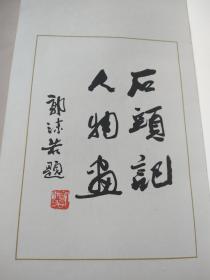 石頭記
人物畫
郭沫若題